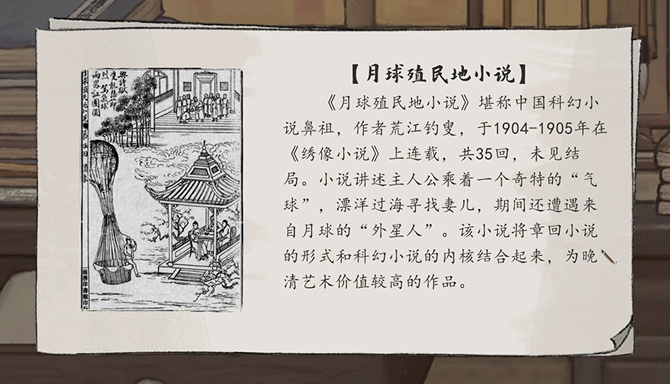 【月球殖民地小说】
《月球殖民地小说》堪称中国科幻小
说鼻祖，作者荒江钓叟，于1904-1905年在
《绣像小说》上连载，共35回，未见结
局。小说讲述主人公乘着一个奇特的“气
球”，漂洋过海寻找妻儿，期间还遭遇来
自月球的“外星人”。该小说将章回小说
的形式和科幻小说的内核结合起来，为晚
清艺术价值较高的作品。